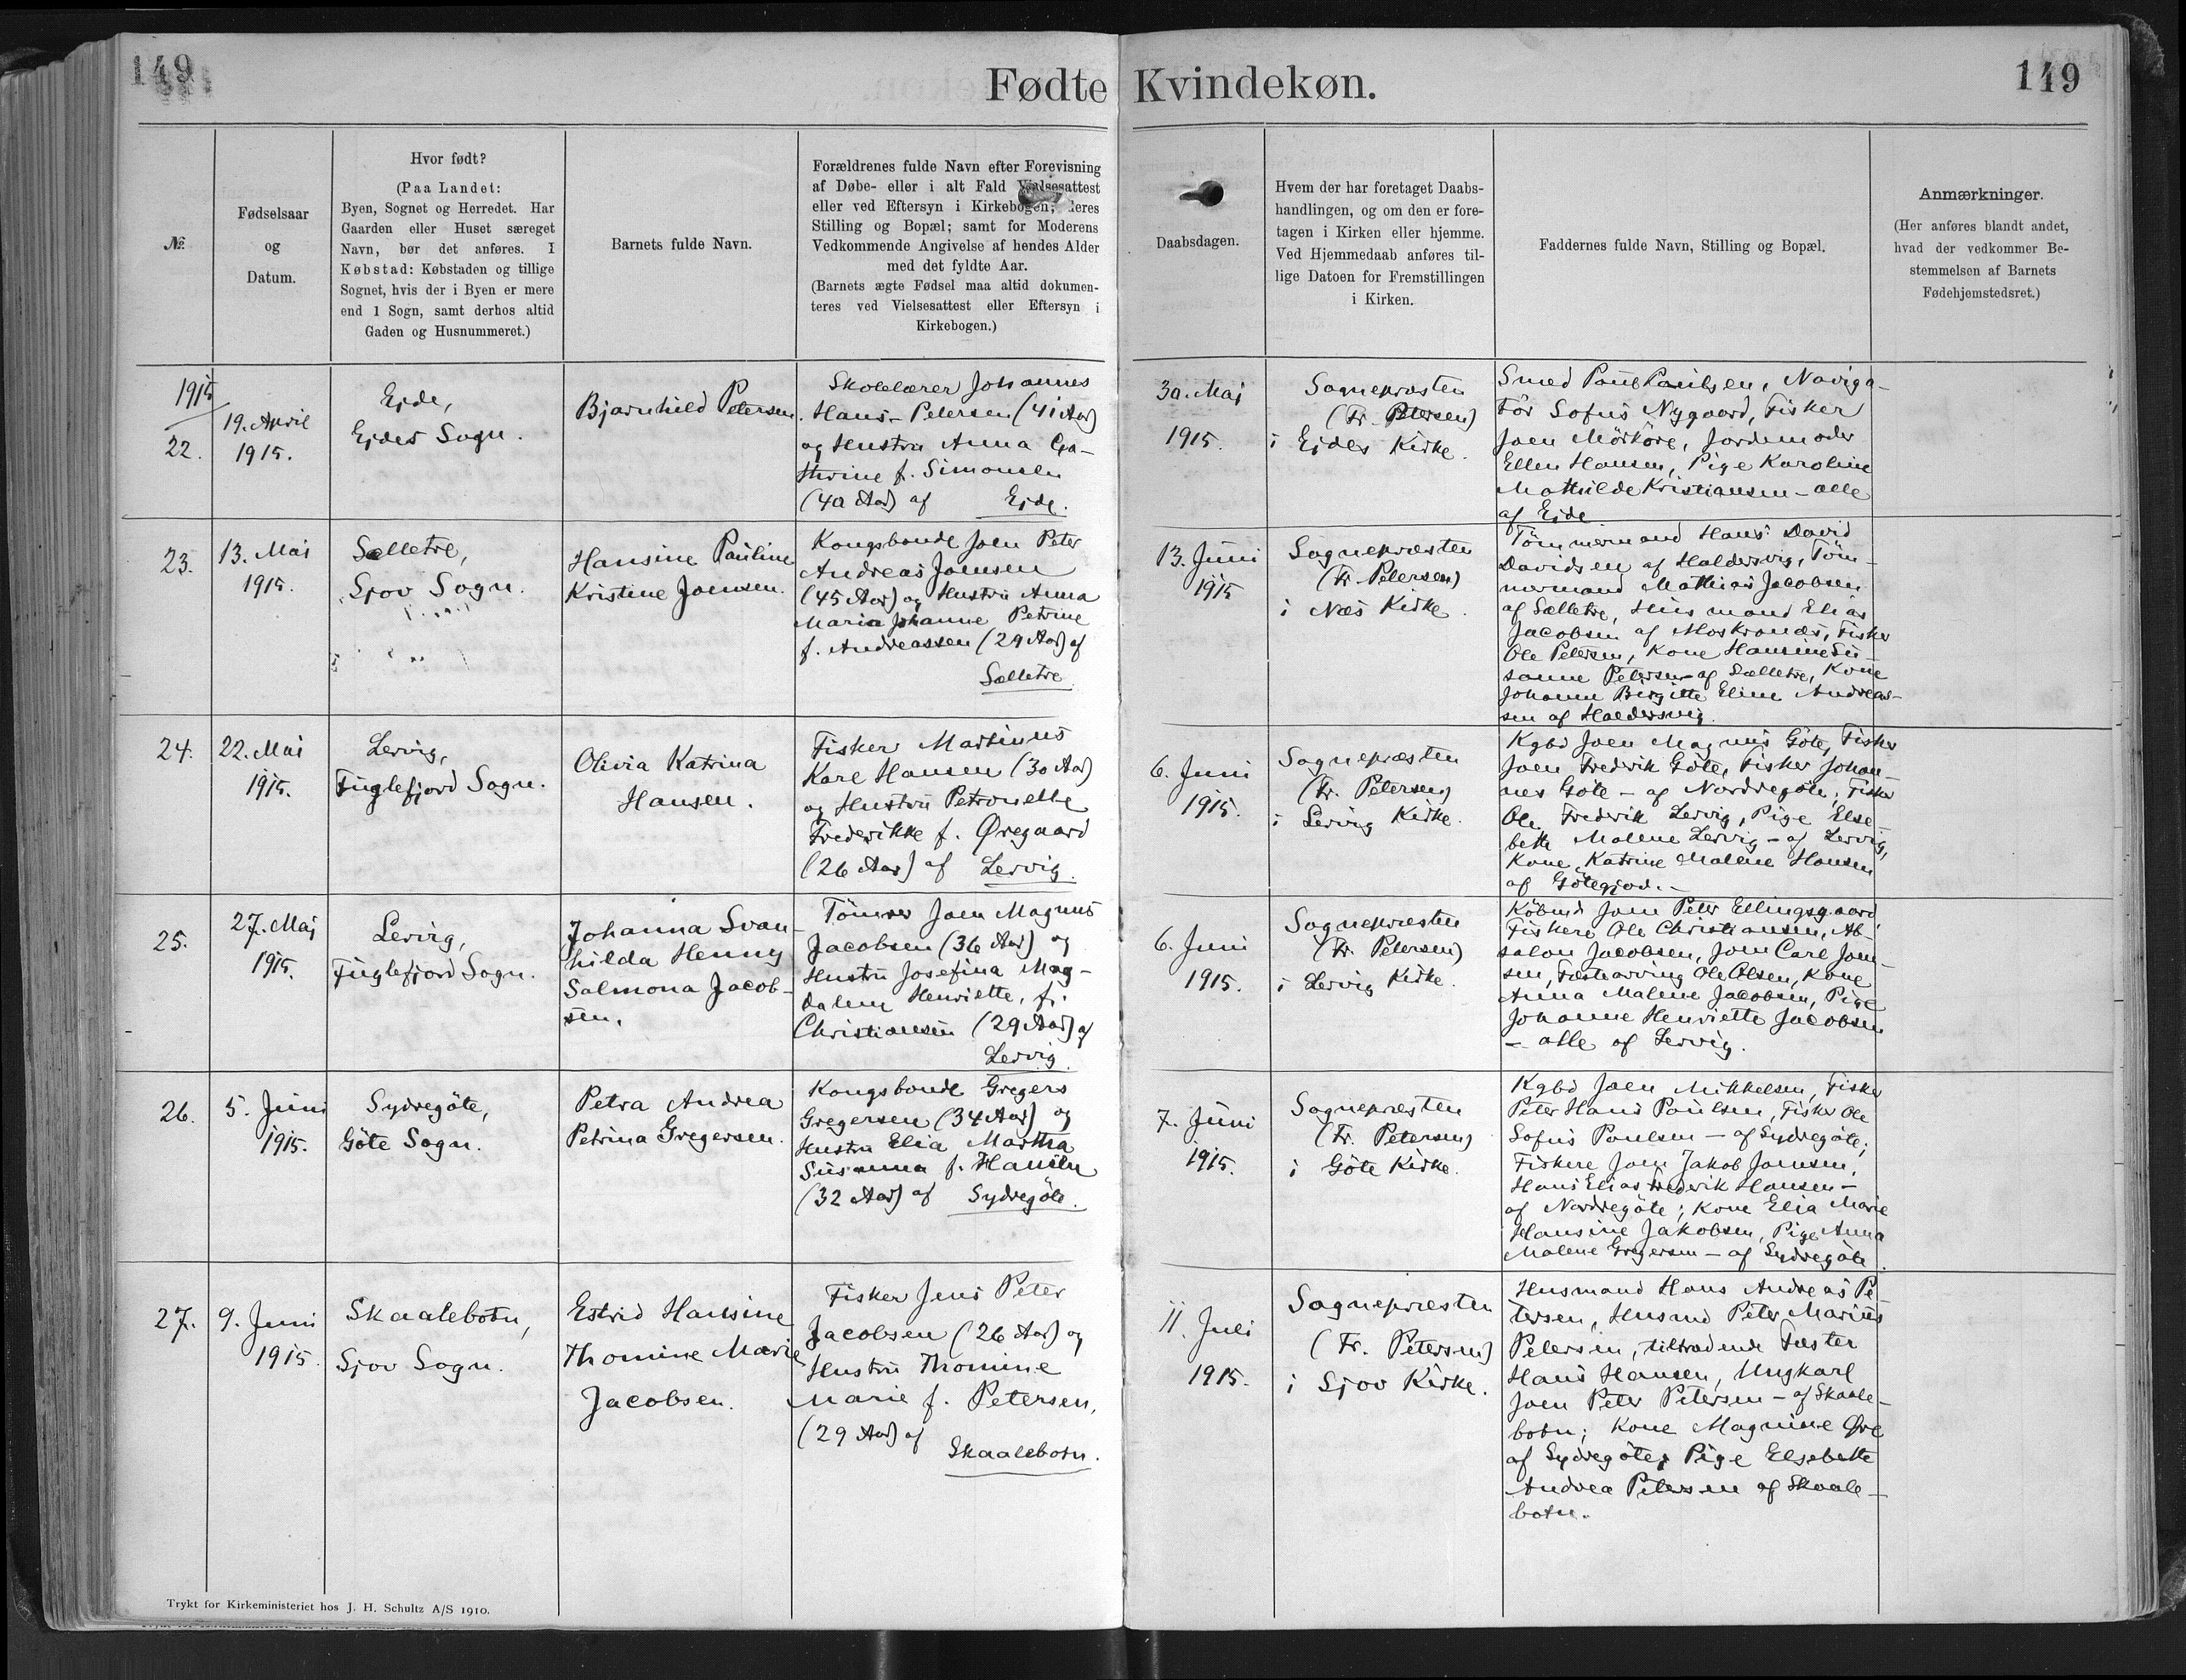 149
Fødte
Kvindekøn.
149
№
Fødselsaar
og
Datum.
Hvor født?
(Paa Landet:
Byen, Sognet og Herredet. Har
Gaarden eller Huset særeget
Navn, bør det anføres. I
Købstad: Købstaden og tillige
Sognet, hvis der i Byen er mere
end 1 Sogn, samt derhos altid
Gaden og Husnummeret.)
Barnets fulde Navn.
Forældrenes fulde Navn efter Forevisning
af Døbe- eller i alt Fald Vielsesattest
eller ved Eftersyn i Kirkebogen; deres
Stilling og Bopæl; samt for Moderens
Vedkommende Angivelse af hendes Alder
med det fyldte Aar.
(Barnets ægte Fødsel maa altid dokumen-
teres ved Vielsesattest eller Eftersyn i
Kirkebogen.)
Daabsdagen.
Hvem der har foretaget Daabs-
handlingen, og om den er fore-
tagen i Kirken eller hjemme.
Ved Hjemmedaab anføres til-
lige Datoen for Fremstillingen
i Kirken.
Faddernes fulde Navn, Stilling og Bopæl.
Anmærkninger.
(Her anføres blandt andet,
hvad der vedkommer Be-
stemmelsen af Barnets
Fødehjemstedsret.)
1915
22.
19. April
1915.
Ejde,
Ejdes Sogn.
Bjarnhild Petersen.
Skolelærer Johannes
Hans Petersen (41 Aar)
og Hustru Anna Ca-
thrine f. Simonsen
(40 Aar) af Ejde.
30. Maj
1915.
Sognepræsten
(Fr. Petersen)
i Ejdes Kirke.
Smed Paul Paulsen, Naviga-
tör Sofus Nygaard, Fisker
Joen Mörköre, Jordemoder
Ellen Hansen, Pige Karoline
Mathilde Kristiansen - alle
af Ejde
23.
13. Maj
1915.
Selletre,
Sjov Sogn.
Hansine Pauline
Kristine Joensen.
Kongsbonde Joen Peter
Andreas Joensen
(45 Aar) og Hustru Anna
Maria Johanne Petrine
f. Andreassen (29 Aar) af
Sælletre
13. Juni
1915
Sognepræsten
(Fr. Petersen)
i Næs Kirke.
Tömmermand Hans David
Davidsen af Haldersvig, Töm-
mermand Mathias Jacobsen
af Sælletre, Husmand Elias
Jacobsen af Moskranæs, Fisker
Ole Petersen, Kone Hansine Su-
sanne Petersen af Sælletre, Kone
Johanne Birgitte Eline Andreas-
sen af Haldersvig.
24.
22. Maj
1915.
Lervig,
Fuglefjord Sogn.
Olivia Katrina
Hansen.
Fisker Martinus
Karl Hansen (30 Aar)
og Hustru Petronelle
Frederikke f. Øregaard
(26 Aar) af Lervig.
6. Juni
1915.
Sognepræsten
(Fr. Petersen)
i Lervig Kirke.
Kgbd Joen Magnus Göte, Fisker
Joen Frederik Göte, Fisker Johan-
nes Göte - af Nordregöte; Fisker
Ole Frederik Lervig, Pige Else-
beth Malene Lervig - af Lervig,
Kone Katrine Malene Hansen
af Götegjod.-
25.
27. Maj
1915.
Lervig,
Fuglefjord Sogn.
Johanna Svan-
hilda Henny
Salmona Jacob-
sen.
Tömrer Joen Magnus
Jacobsen (36 Aar) og
Hustru Josefina Mag-
dalene Henriette, f.
Christiansen (29 Aar) af
Lervig.
6. Juni
1915.
Sognepræsten
(Fr. Petersen)
i Lervig Kirke.
Köbmd Joen Peter Ellingsgaard
Fiskere Ole Christiansen, Ab-
salon Jacobsen, Joen Carl Joen-
sen, Fæstearving Ole Olsen, Kone
Anna Malene Jacobsen, Pige
Johanne Henriette Jacobsen
- alle af Lervig.
26.
5. Juni
1915.
Sydregöte,
Göte Sogn.
Petra Andrea
Petrina Gregersen.
Kongsbonde Gregers
Gregersen (34 Aar) og
Hustru Elia Martha
Susanna f. Hansen
(32 Aar) af Sydregöte.
7. Juni
1915.
Sognepræsten
(Fr. Petersen)
i Göte Kirke.
Kgbd Joen Mikkelsen, Fisker
Peter Hans Poulsen, Fisker Ole
Sofus Poulsen - af Sydregöte;
Fiskere Joen Jakob Joensen,
Hans Elias Frederik Hansen -
af Nordregöte; Kone Elia Marie
Hansine Jakobsen, Pige Anna
Malene Gregersen - af Sydregöte.
27.
9. Juni
1915.
Skaalebotn,
Sjov Sogn.
Estrid Hansine
Thomine Marie
Jacobsen.
Fisker Jens Peter
Jacobsen (26 Aar) og
Hustru Thomine
Marie f. Petersen,
(29 Aar) af
Skaalebotn.
11. Juli
1915.
Sognepræsten
(Fr. Petersen)
i Sjov Kirke.
Husmand Hans Andreas Pe-
tersen, Husmd Peter Marius
Petersen, tiltrædende Fæster
Hans Hansen, Ungkarl
Joen Peter Petersen - af Skaale-
botn; Kone Magnine Øre
af Sydregöte, Pige Elsebeth
Andrea Petersen af Skaale-
botn.
Trykt for Kirkeministeriet hos J. H. Schultz A/S 1910.